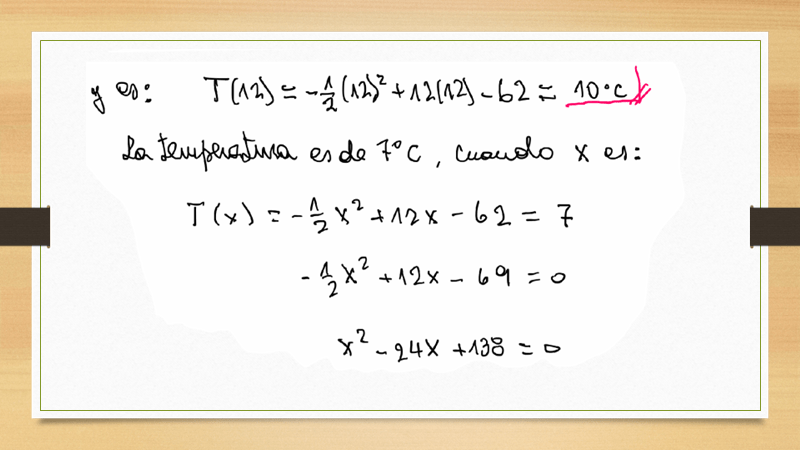 y es: T(12) = -1/2(12)² + 12(12) - 62 = 10°C
La temperatura es de 7°C, cuando x es:
T(x) = -1/2x² + 12x - 62 = 7
-1/2x² + 12x - 69 = 0
x² - 24x + 138 = 0